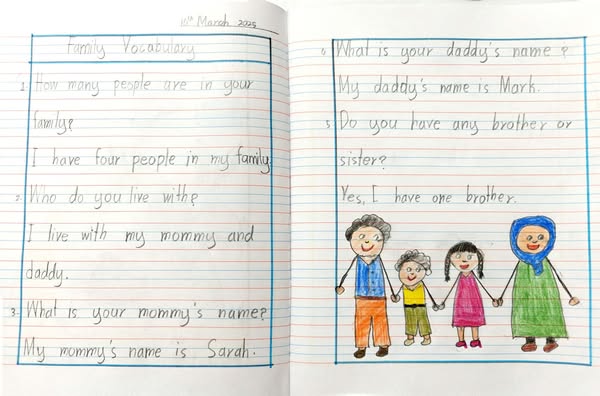 10th March 2025
Family Vocabulary
1. How many people are in your
family?
I have four people in my family.
2. Who do you live with?
I live with my mommy and
daddy.
3. What is your mommy's name?
My mommy's name is Sarah.
4. What is your daddy's name?
My daddy's name is Mark.
5. Do you have any brother or
sister?
Yes, I have one brother.